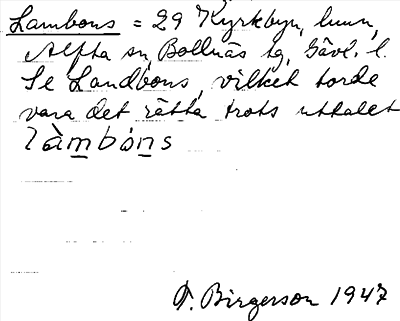 Lambons = 29 Kyrkbyn, hmn,
Alfta sn, Bollnäs tg, Gävl. l.
Se Landbons, vilket torde
vara det rätta trots uttalet
làmbóns
F. Birgerson 1947